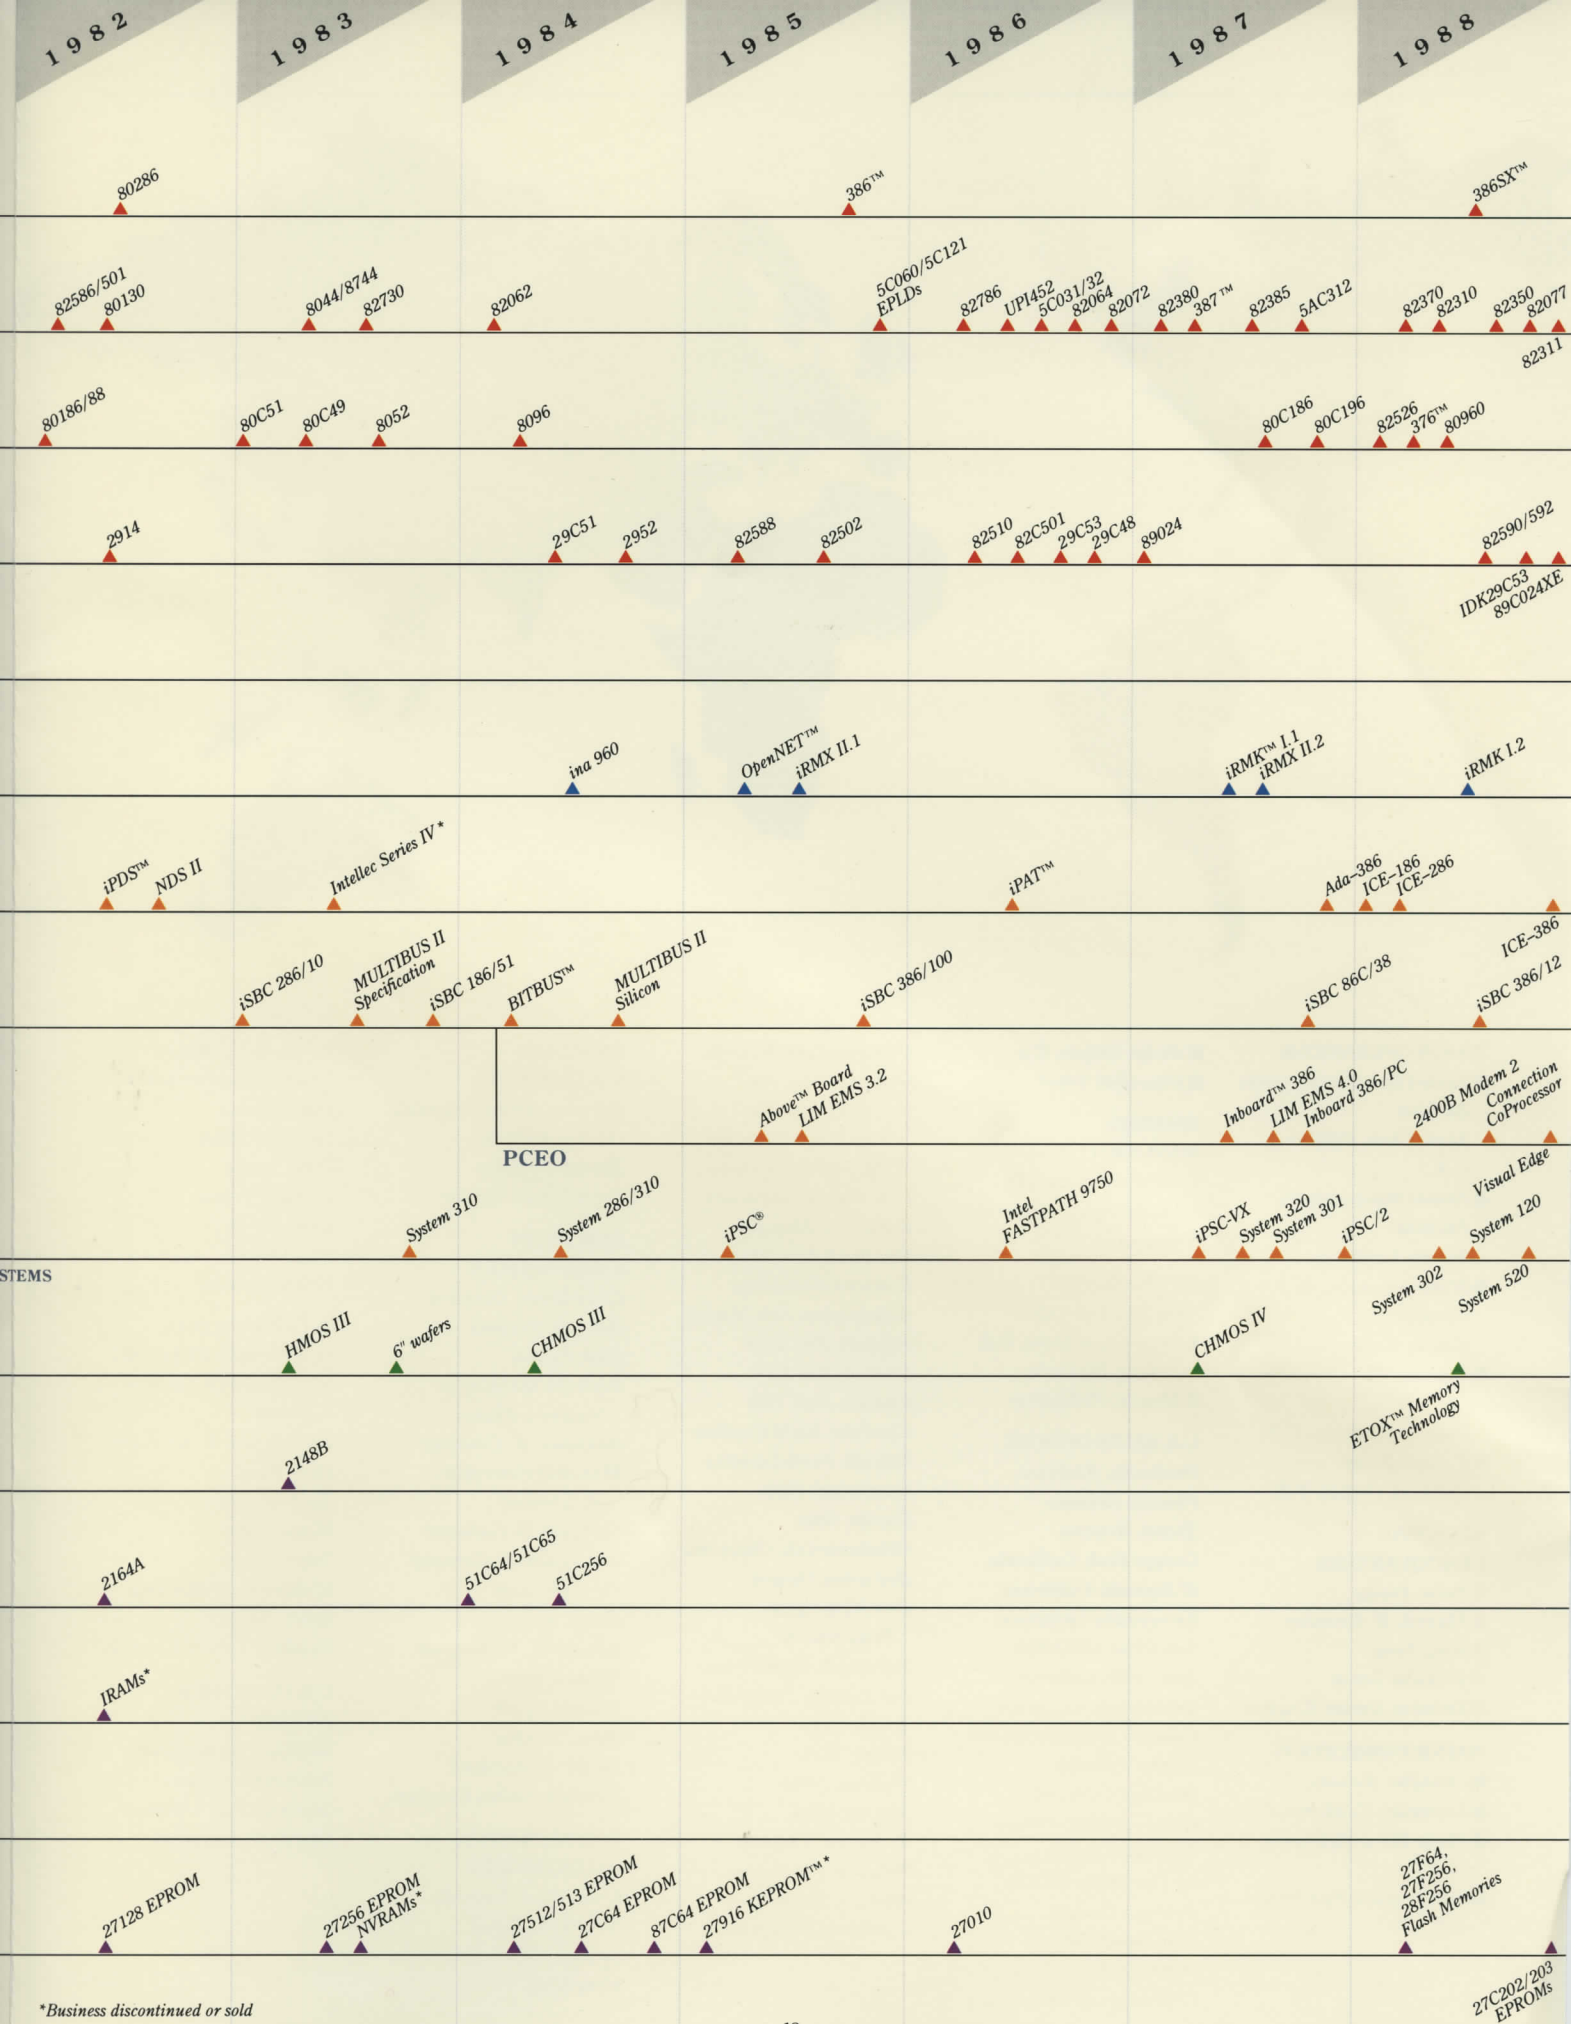 1982
1983
1984
1985
1986
1987
1988
80286
386™
386SX™
82586/501
80130
8044/8744
82730
82062
5C060/5C121
EPLDs
82786
UPI452
5C031/32
82064
82072
82380
387™
82385
5AC312
82370
82310
82350
82077
82311
80186/88
80C51
80C49
8052
8096
80C186
80C196
82526
376™
80960
2914
29C51
2952
82588
82502
82510
82C501
29C53
29C48
89024
82590/592
IDK29C53
89C024XE
ina 960
OpenNET™
iRMX II.1
iRMK™ I.1
iRMX II.2
iRMK I.2
iPDS™
NDS II
Intellec Series IV*
iPAT™
Ada-386
ICE-186
ICE-286
ICE-386
iSBC 286/10
MULTIBUS II
Specification
iSBC 186/51
BITBUS™
MULTIBUS II
Silicon
iSBC 386/100
iSBC 86C/38
iSBC 386/12
Above™ Board
LIM EMS 3.2
Inboard™ 386
LIM EMS 4.0
Inboard 386/PC
2400B Modem 2
Connection
CoProcessor
Visual Edge
PCEO
System 310
System 286/310
iPSC®
Intel
FASTPATH 9750
iPSC-VX
System 320
System 301
iPSC/2
System 302
System 120
System 520
STEMS
HMOS III
6" wafers
CHMOS III
CHMOS IV
ETOX™ Memory
Technology
2148B
2164A
51C64/51C65
51C256
IRAMs*
27128 EPROM
27256 EPROM
NVRAMs*
27512/513 EPROM
27C64 EPROM
87C64 EPROM
27916 KEPROM™*
27010
27F64,
27F256,
28F256
Flash Memories
27C202/203
EPROMs
*Business discontinued or sold